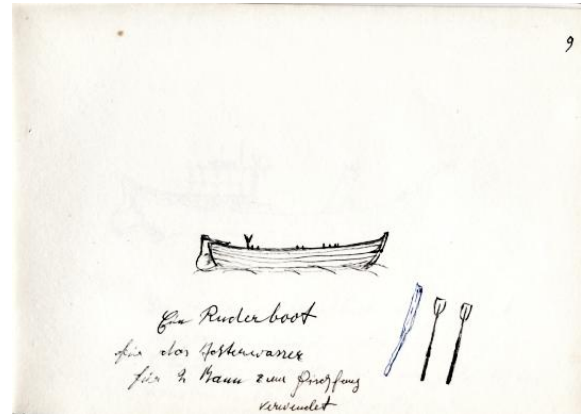 9
Ein Ruderboot
für das Achterwasser
für 2 Mann zum Fischfang
verwendet